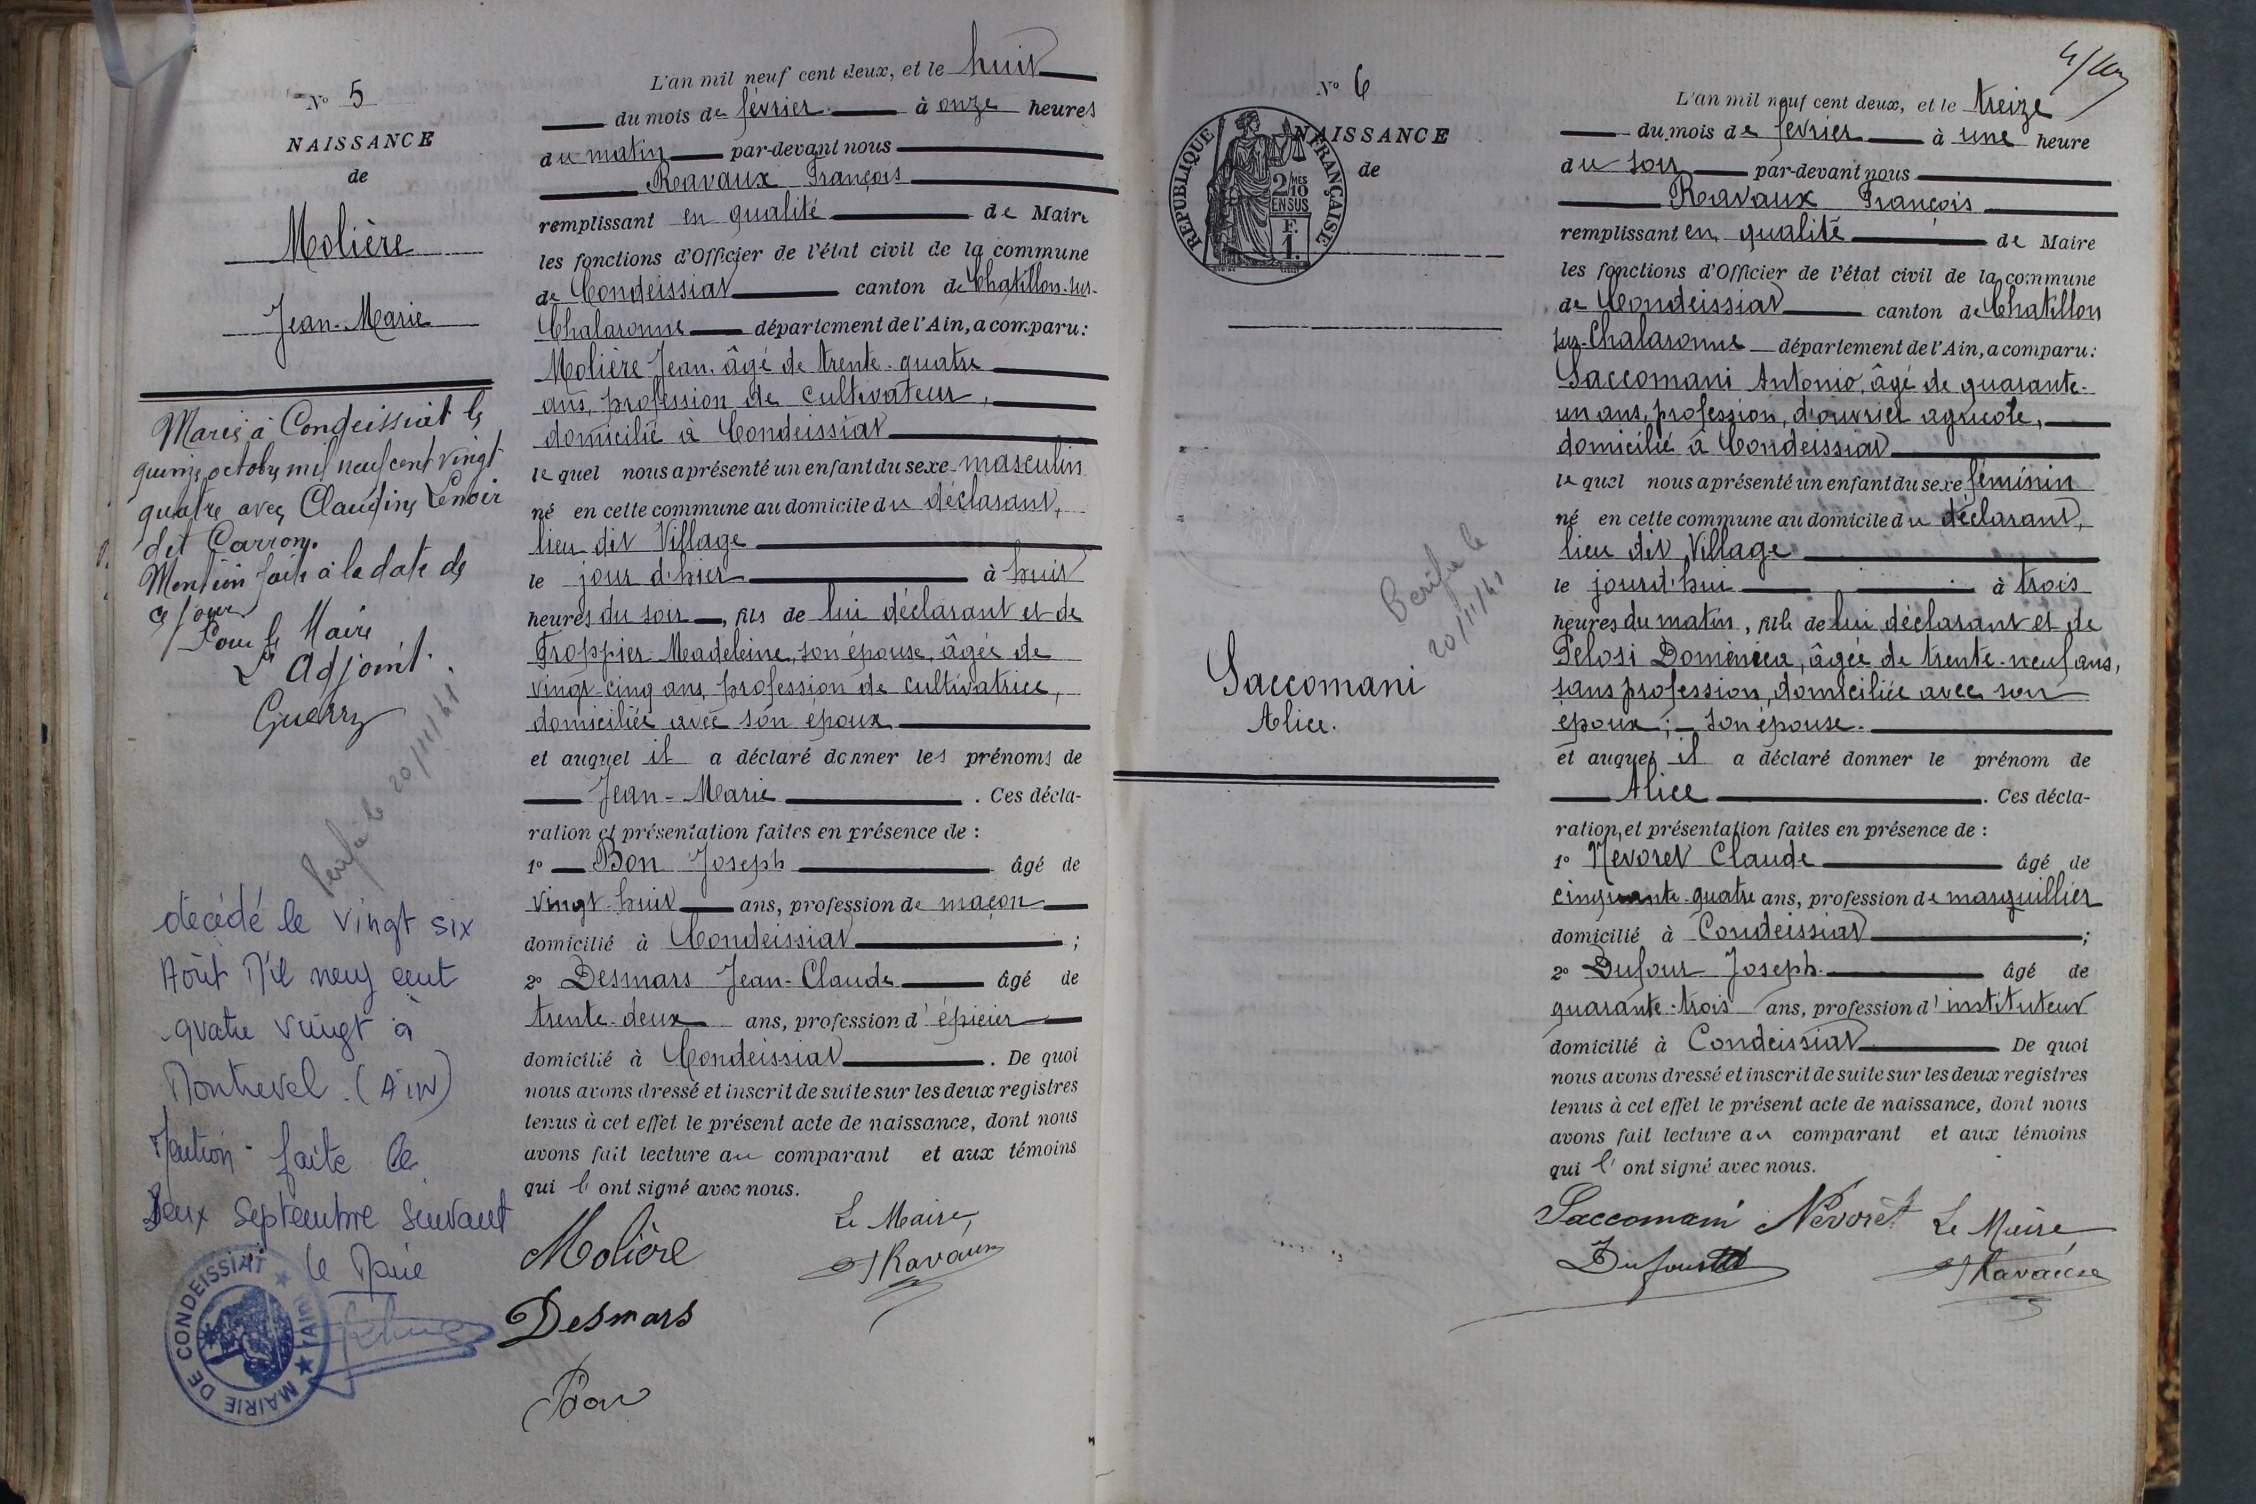 N° 5
NAISSANCE
de
Molière
Jean-Marie
Marié à Condeissiat le
quinze octobre mil neuf cent vingt
quatre avec Claudine Lenoir
dit Carron.
Mention faite à la date de
ce jour
Pour le Maire
L'Adjoint.
Guerry
20/11/41
décédé le vingt six
Août Mil neuf cent
quatre vingt à
Montrevel. (AIN)
Mention faite le
Deux Septembre suivant
le Maire
MAIRIE DE CONDEISSIAT ★ (AIN) ★
L'an mil neuf cent deux, et le huit
du mois de février à onze heures
du matin par-devant nous
Ravaux François
remplissant en qualité de Maire
les fonctions d'Officier de l'état civil de la commune
de Condeissiat canton de Chatillon-sur-
Chalaronne département de l'Ain, a comparu :
Molière Jean, âgé de trente-quatre
ans, profession de cultivateur,
domicilié à Condeissiat
lequel nous a présenté un enfant du sexe masculin
né en cette commune au domicile du déclarant,
lieu dit Village
le jour d'hier à huit
heures du soir, fils de lui déclarant et de
Groppier Madeleine, son épouse, âgée de
vingt-cinq ans, profession de cultivatrice,
domiciliée avec son époux
et auquel il a déclaré donner les prénoms de
Jean-Marie. Ces décla-
ration et présentation faites en présence de :
1° Bon Joseph âgé de
vingt-huit ans, profession de maçon
domicilié à Condeissiat ;
2° Desmars Jean-Claude âgé de
trente-deux ans, profession d'épicier
domicilié à Condeissiat. De quoi
nous avons dressé et inscrit de suite sur les deux registres
tenus à cet effet le présent acte de naissance, dont nous
avons fait lecture au comparant et aux témoins
qui l'ont signé avec nous.
Molière Le Maire,
Ravaux
Desmars
Bon
N° 6
NAISSANCE
de
REPUBLIQUE FRANÇAISE
2/10 MES
EN SUS
F.
1.
20/11/41
Saccomani
Alice.
L'an mil neuf cent deux, et le treize
du mois de février à une heure
du soir par-devant nous
Ravaux François
remplissant en qualité de Maire
les fonctions d'Officier de l'état civil de la commune
de Condeissiat canton de Chatillon
sur-Chalaronne département de l'Ain, a comparu :
Saccomani Antonio, âgé de quarante-
un ans, profession, d'ouvrier agricole,
domicilié à Condeissiat
lequel nous a présenté un enfant du sexe féminin
né en cette commune au domicile du déclarant,
lieu dit Village
le jourd'hui à trois
heures du matin, fille de lui déclarant et de
Pelosi Doménica, âgée de trente-neuf ans,
sans profession, domiciliée avec son
époux ; son épouse.
et auquel il a déclaré donner le prénom de
Alice. Ces décla-
ration, et présentation faites en présence de :
1° Névoret Claude âgé de
cinquante-quatre ans, profession de marguillier
domicilié à Condeissiat ;
2° Dufour Joseph. âgé de
quarante-trois ans, profession d'instituteur
domicilié à Condeissiat De quoi
nous avons dressé et inscrit de suite sur les deux registres
tenus à cet effet le présent acte de naissance, dont nous
avons fait lecture au comparant et aux témoins
qui l'ont signé avec nous.
Saccomani Névoret Le Maire
Dufour Ravaux